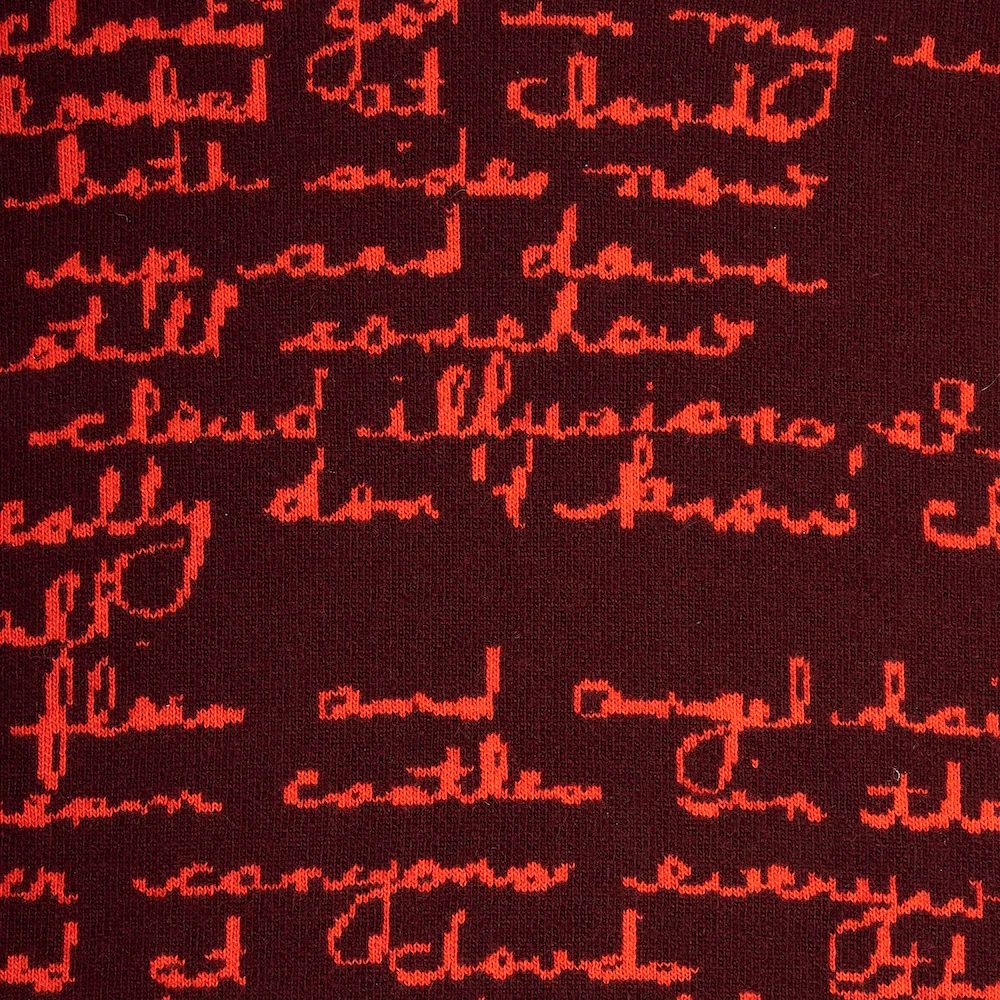 clouds got in my
looked at cloud
both sides now
up and down
still somehow
cloud illusions, I
eally don't know cl
all
flows and angel hai
eam castles in the
er canyons everyw
ed at clouds th